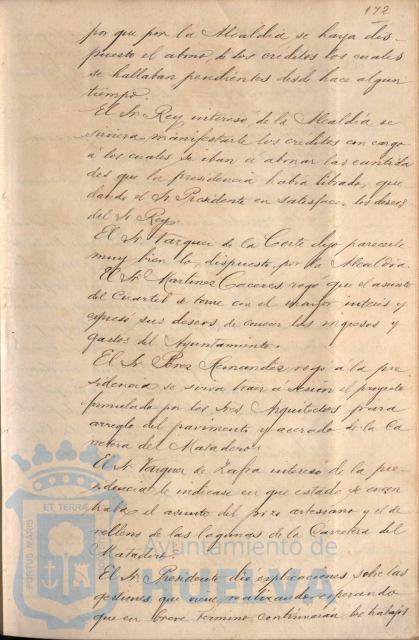 172
por que por la Alcaldía se haya dis-
puesto el abono de los créditos los cuales
se hallaban pendientes desde hace algun
tiempo.
El Sr. Rey interesó de la Alcaldía se
sirviera manifestarle los créditos con cargo
á los cuales se iban á abonar las cantida
des que la presidencia habia librado, que
dando el Sr. Presidente en satisfacer los deseos
del Sr. Rey.
El Sr. Vazquez de la Corte dijo parecerle
muy bien lo dispuesto por la Alcaldía.
El Sr. Martinez rogó que el asunto
del Cuartel se tome con el mayor interés y
expresó sus deseos de conocer los ingresos y
gastos del Ayuntamiento.
El Sr. Perez Hernandez rogó á la pre
sidencia se sirva traer á sesión el proyecto
formulado por los Sres. Arquitectos para
arreglo del pavimento y acerado de la Ca
rretera del Matadero.
El Sr. Vazquez de Zafra interesó de la pre-
sidencia le indicase en que estado se encon
traba el asunto del pozo artesiano y el de
rellenos de las lagunas de la Carretera del
Matadero.
El Sr. Presidente dió esplicaciones sobre las
gestiones que viene realizando esperando
que en breve término continuarán los trabajos
PORTUS MARIS
ET TERRAE
Ayuntamiento de
HUELVA